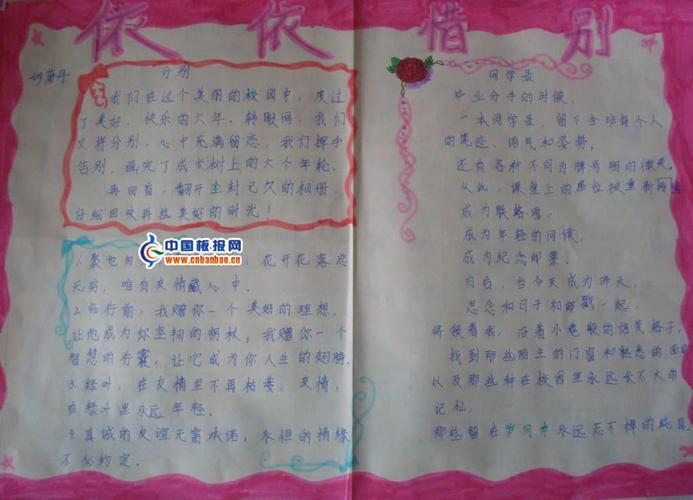 依依惜别
分别
我们在这个美丽的校园中，度过
了美好、快乐的六年，转眼间，我们
又将分别，心中充满留恋，我们挥手
告别，画完了成长树上的六个年轮。
再回首，翻开尘封已久的相册，
仔细回味再些美好的时光！
中国板报网
www.cnbanbao.cn
1.聚也匆 花开花落总
无期，唯有友情藏心中.
2.临行前，我赠你一个美好的理想，
让他成为你坚韧的拐杖，我赠你一个
智慧的行囊，让它成为你人生的翅膀.
3.绿叶，在友情里不再枯萎；友情，
在绿叶里永远年轻.
4.真诚的友谊无需承诺，永恒的情缘
不必约定.
同学录
毕业分手的时候，
一本同学录，留下全班每个人
的笔迹、语气和姿势，
还有各种不同为牌号码的微笑。
从此，课堂上的座位被重新
成为联络图，
成为年轻的问候，
成为纪念邮票.
日后，当今天成为昨天，
思念和日子和邮戳一起，
将领着我，沿着小巷般的信笺格子，
找到那些陌生的门窗和熟悉的面
以及那些种在校园里永远长不大的
记忆，
那些留在岁月中永远忘不掉的纯真